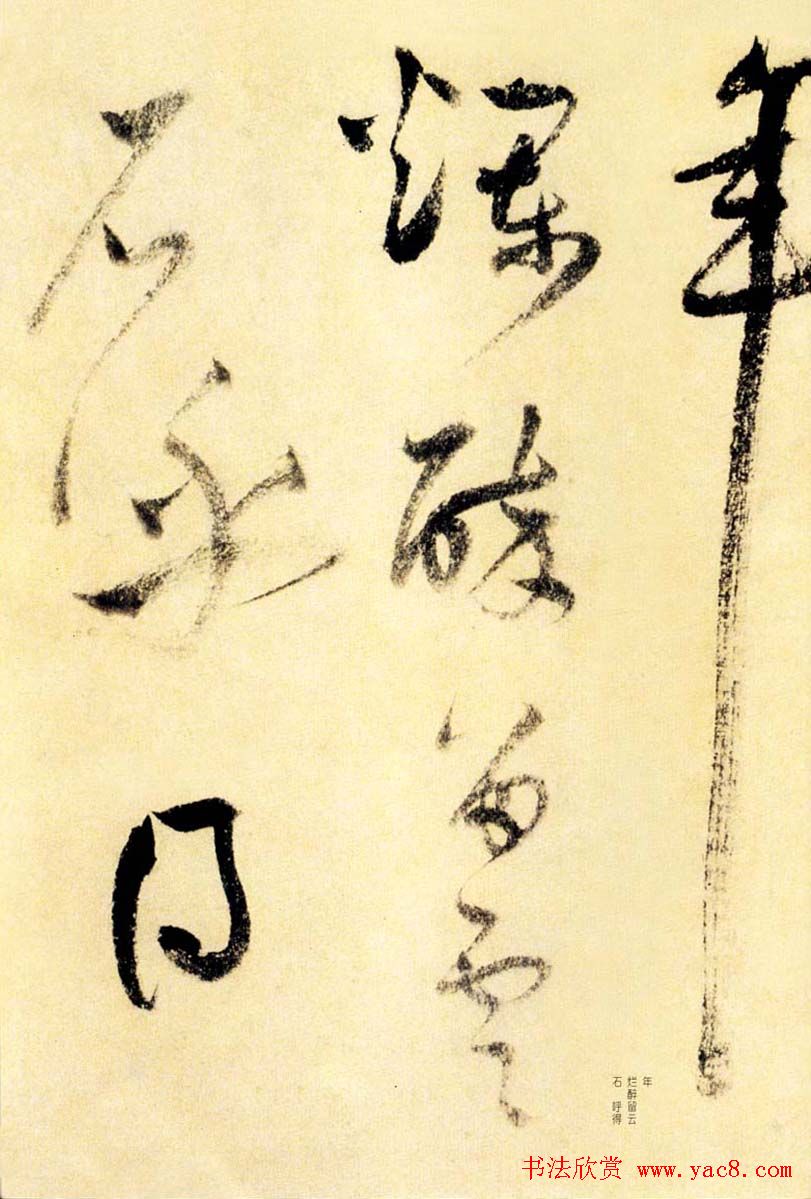 年
爛醉留雲
石
年
烂醉留云
石 呼得
书法欣赏 www.yac8.com